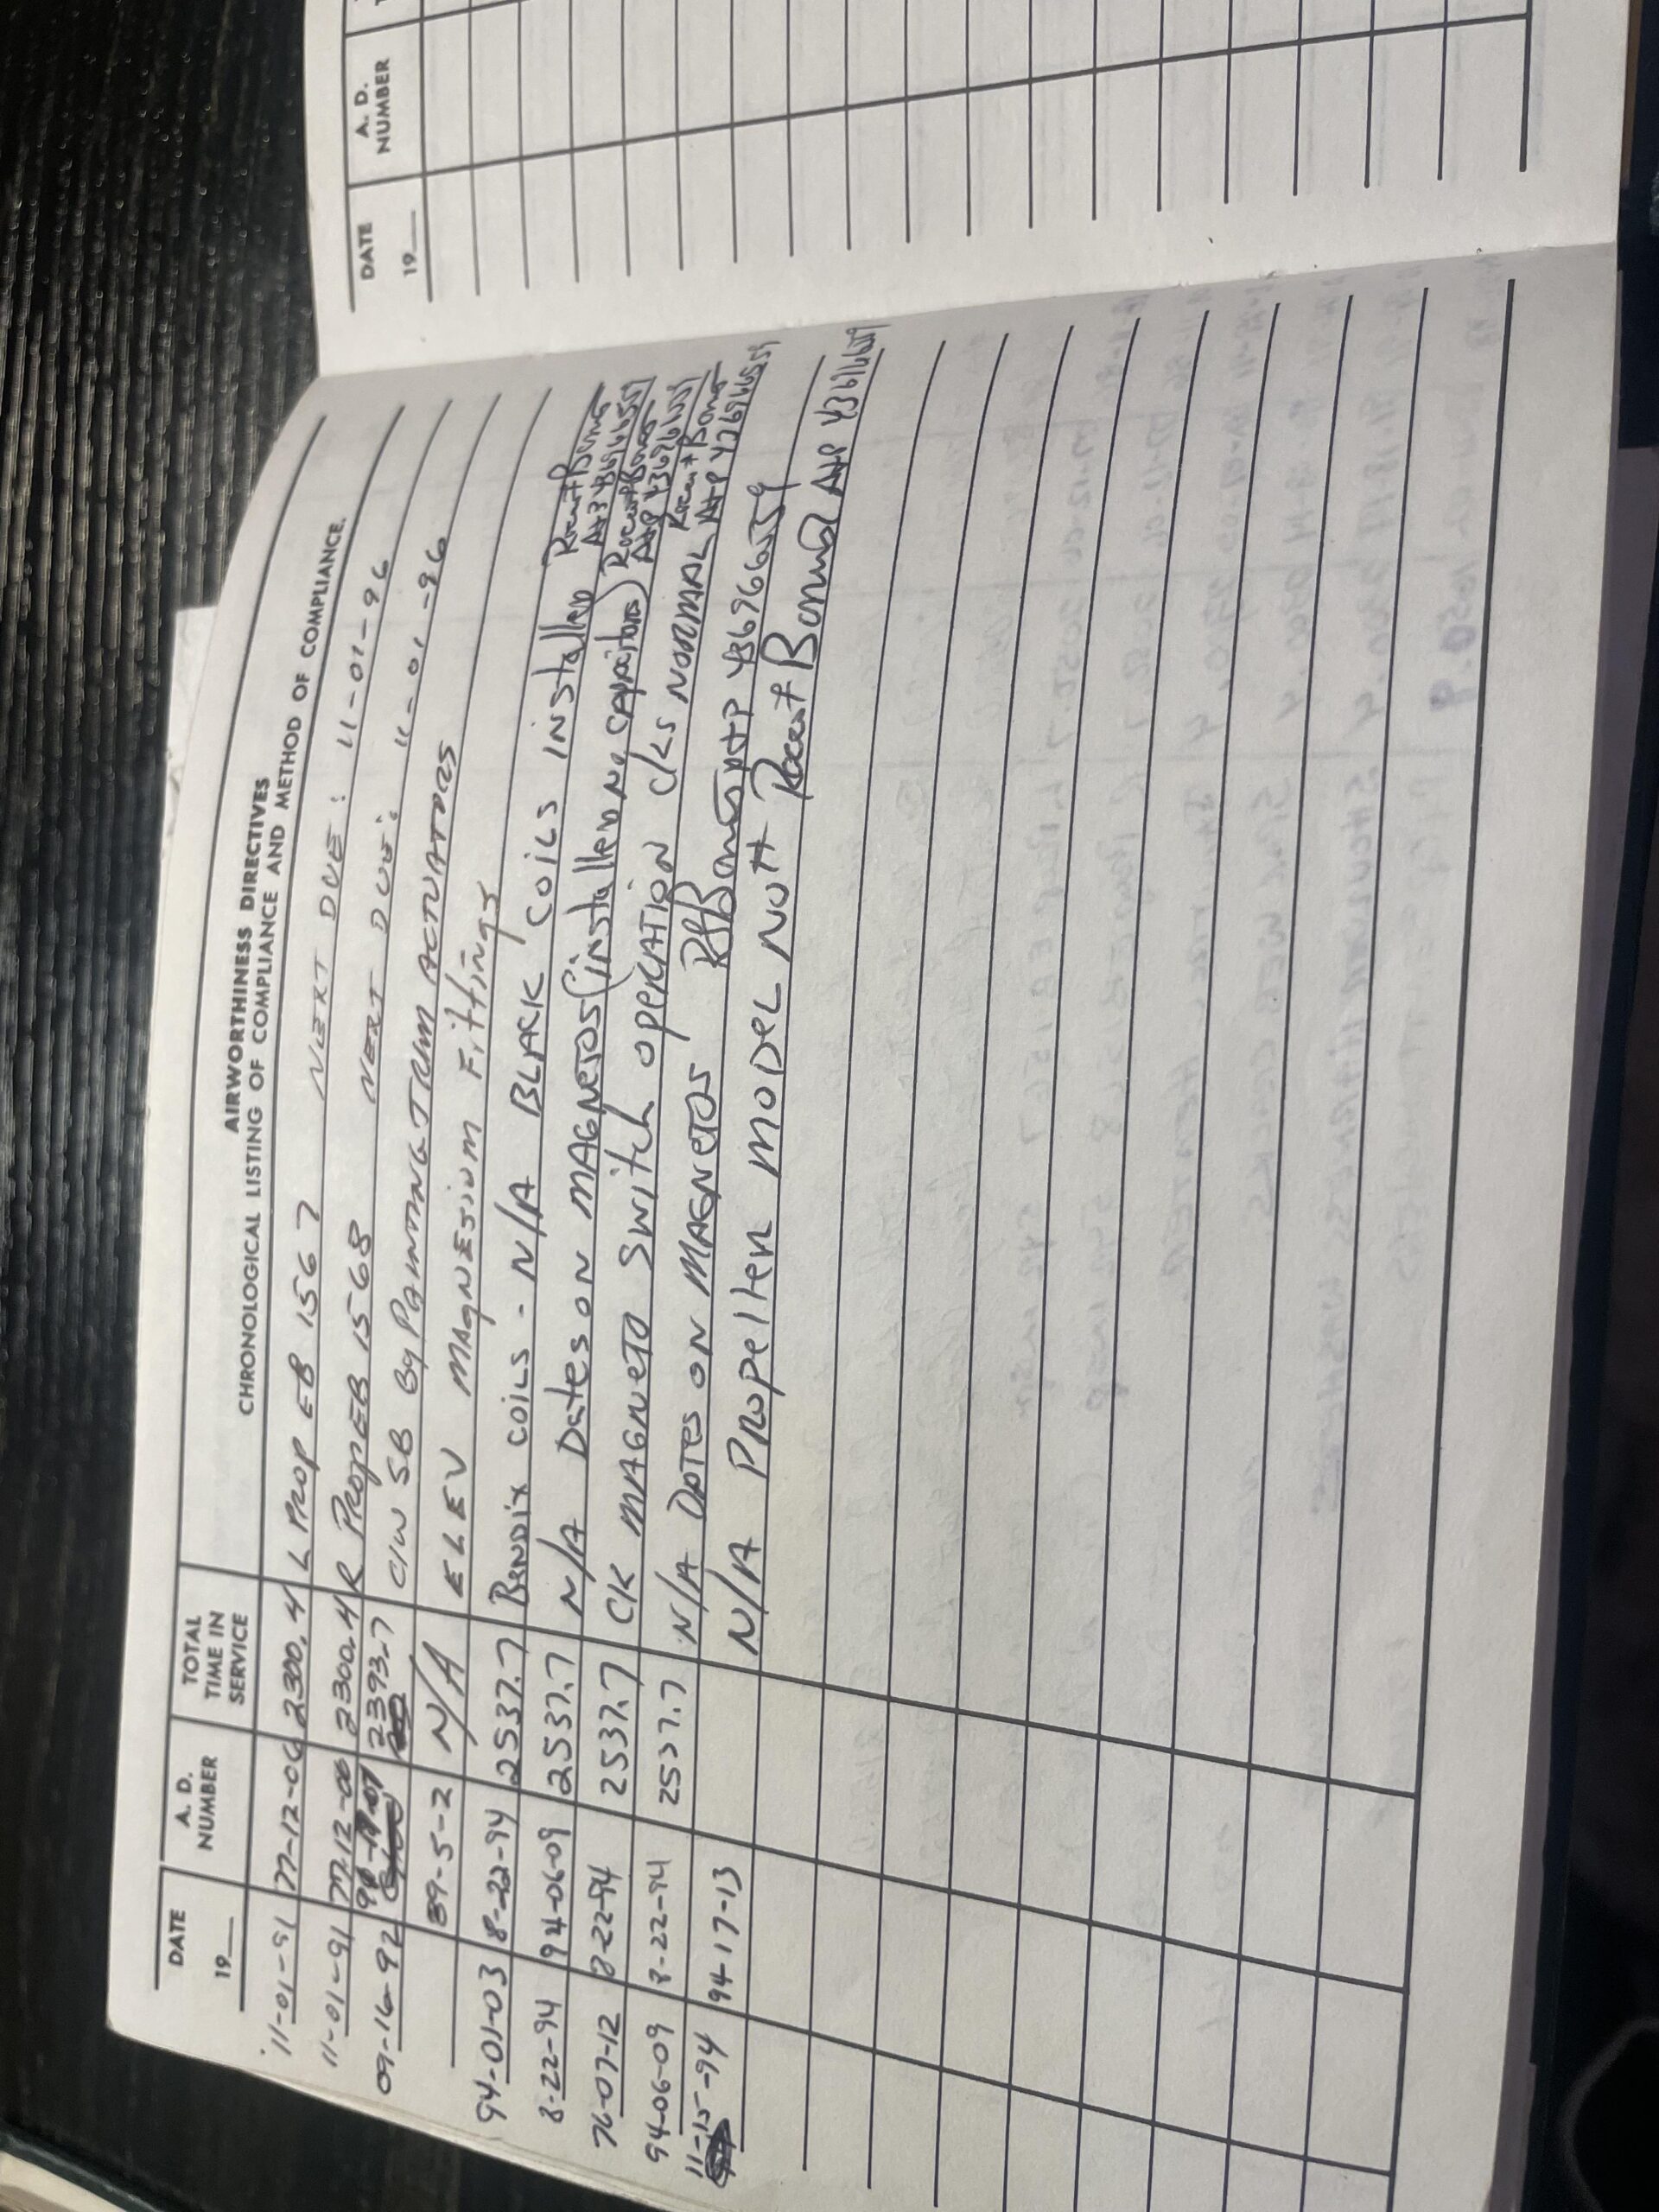 AIRWORTHINESS DIRECTIVES
CHRONOLOGICAL LISTING OF COMPLIANCE AND METHOD OF COMPLIANCE.
DATE 19__ A. D. NUMBER TOTAL TIME IN SERVICE
11-01-91 77-12-06 2300.4 L PROP EB 1567 NEXT DUE: 11-01-96
11-01-91 77-12-06 2300.4 R PROP EB 1568 NEXT DUE: 11-01-96
09-16-92 2393.7 C/W SB By PAINTING TRIM ACTUATORS
89-5-2 N/A ELEV MAgNESium Fittings
94-01-03 8-22-94 2537.7 BENDix COILS - N/A BLACK COILS INStalleD
8-22-94 94-06-09 2537.7 N/A Dates ON MAGNETOS (INStalleD NO CAPACITORS)
76-07-12 8-22-94 2537.7 CK MAGNETO SWitch OPERATION cks NORMAL A+P
94-06-09 8-22-94 2537.7 N/A DATES ON MAGNETOS A+P
11-15-94 94-17-13 N/A PROPelleR MODEL NO A+P
DATE 19__ A. D. NUMBER